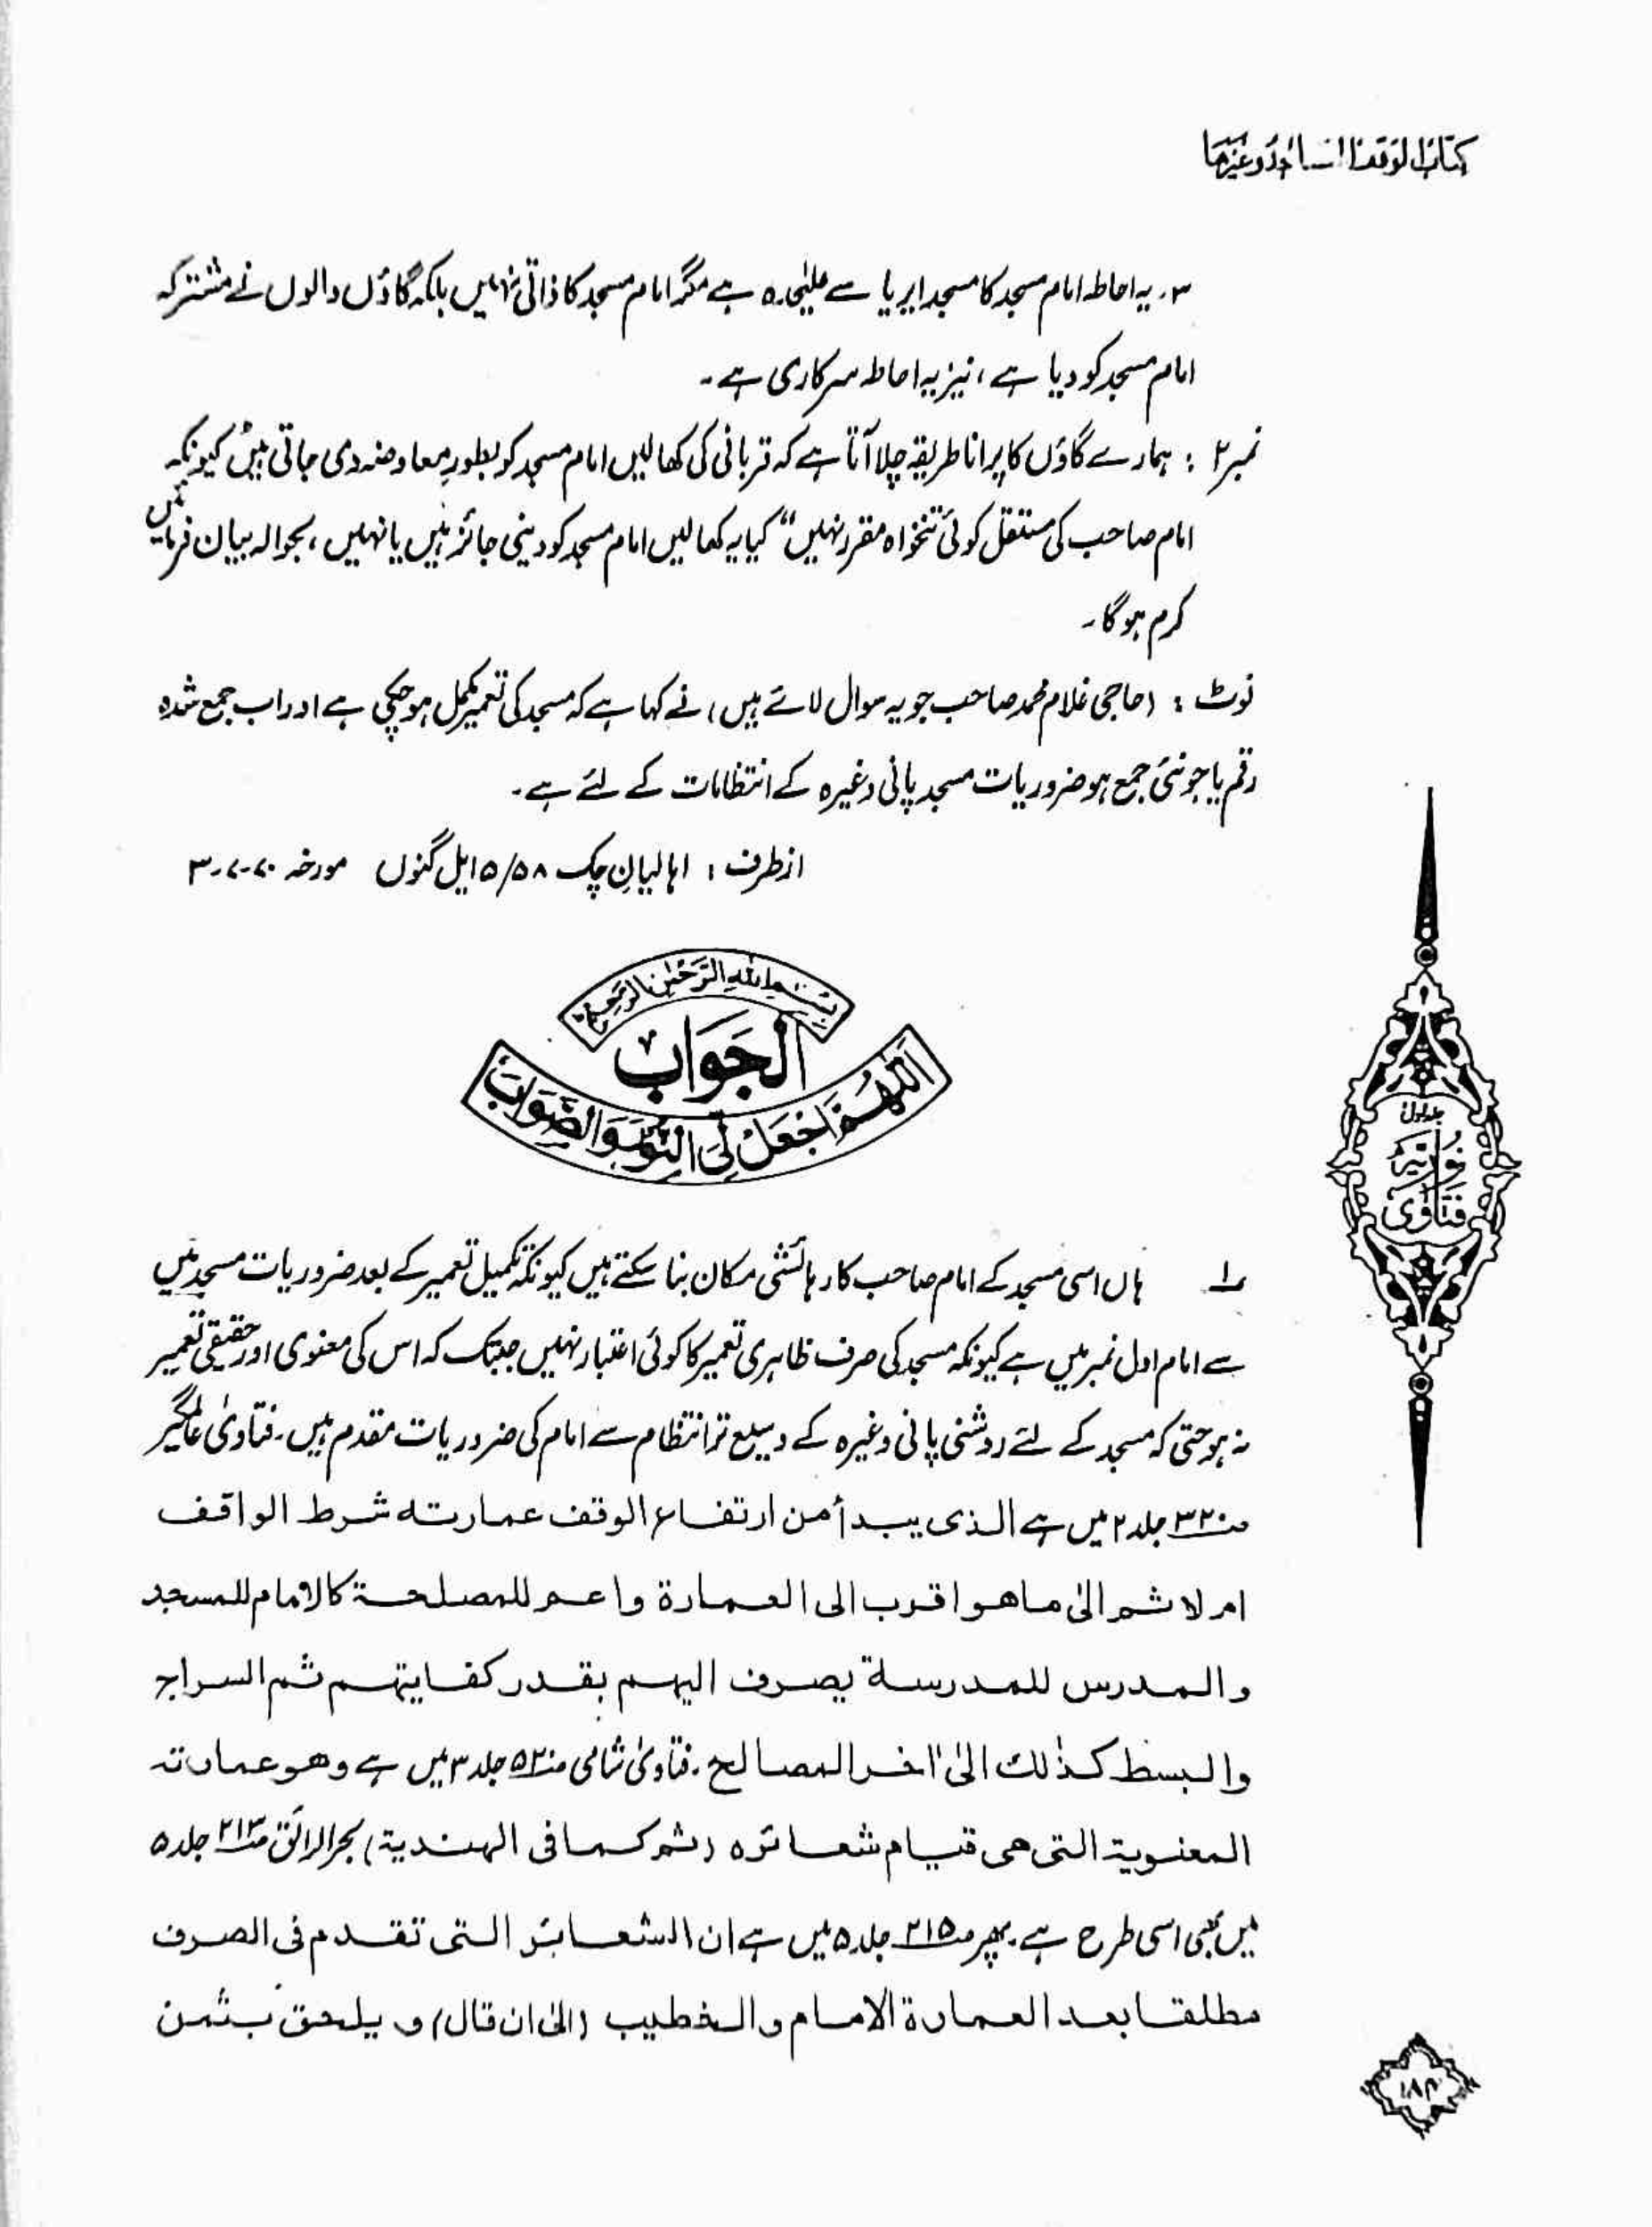 کتاب الوقف المساجد وغیرہما
۳۔ یہ احاطہ امام مسجد کا مسجد ایریا سے علیٰحدہ ہے مگر امام مسجد کا ذاتی نہیں بلکہ گاؤں والوں نے مشترکہ
امام مسجد کو دیا ہے، نیز یہ احاطہ سرکاری ہے۔
نمبر ۲ : ہمارے گاؤں کا پرانا طریقہ چلا آتا ہے کہ قربانی کی کھالیں امام مسجد کو بطورِ معاوضہ دی جاتی ہیں کیونکہ
امام صاحب کی مستقل کوئی تنخواہ مقرر نہیں“ کیا یہ کھالیں امام مسجد کو دینی جائز ہیں یا نہیں، بحوالہ بیان فرمائیں
کرم ہوگا۔
نوٹ : (حاجی غلام محمد صاحب جو یہ سوال لائے ہیں) نے کہا ہے کہ مسجد کی تعمیر مکمل ہو چکی ہے اور اب جمع شدہ
رقم یا جو نئی جمع ہو ضروریات مسجد پانی وغیرہ کے انتظامات کے لئے ہے۔
ازطرف : اہالیانِ چک ۵/۵۸ ایل گنوں مورخہ ۷۰-۷-۳
بسم اللہ الرحمٰن الرحیم
الجواب
اللھم اجعل لی النور والصواب
۱؎ ہاں اسی مسجد کے امام صاحب کا رہائشی مکان بنا سکتے ہیں کیونکہ تکمیل تعمیر کے بعد ضروریات مسجد میں
سے امام اول نمبر میں ہے کیونکہ مسجد کی صرف ظاہری تعمیر کا کوئی اعتبار نہیں جبتک کہ اس کی معنوی اور حقیقی تعمیر
نہ ہو حتی کہ مسجد کے لئے روشنی پانی وغیرہ کے وسیع تر انتظام سے امام کی ضروریات مقدم ہیں۔ فتاویٰ عالمگیر
ص۳۲۰ جلد ۲ میں ہے الذی یبدأ من ارتفاع الوقف عمارتہ شرط الواقف
ام لا ثم الیٰ ما ھو اقرب الی العمارۃ واعم للمصلحۃ کالامام للمسجد
والمدرس للمدرسۃ یصرف الیھم بقدر کفایتھم ثم السراج
والبسط کذٰلک الیٰ اٰخر المصالح۔ فتاویٰ شامی ص۵۲۰ جلد ۳ میں ہے وھو عمارتہ
المعنویۃ التی ھی قیام شعائرہ (ثم کما فی الھندیۃ) بحر الرائق ص۲۱۳ جلد ۵
میں بھی اسی طرح ہے۔ پھر ص۲۱۵ جلد ۵ میں ہے ان الشعائر التی تقدم فی الصرف
مطلقا بعد العمارۃ الامام والخطیب (الیٰ ان قال) و یلحق بثمن
جلد اول
نوریہ
فتاویٰ
۱۸۴